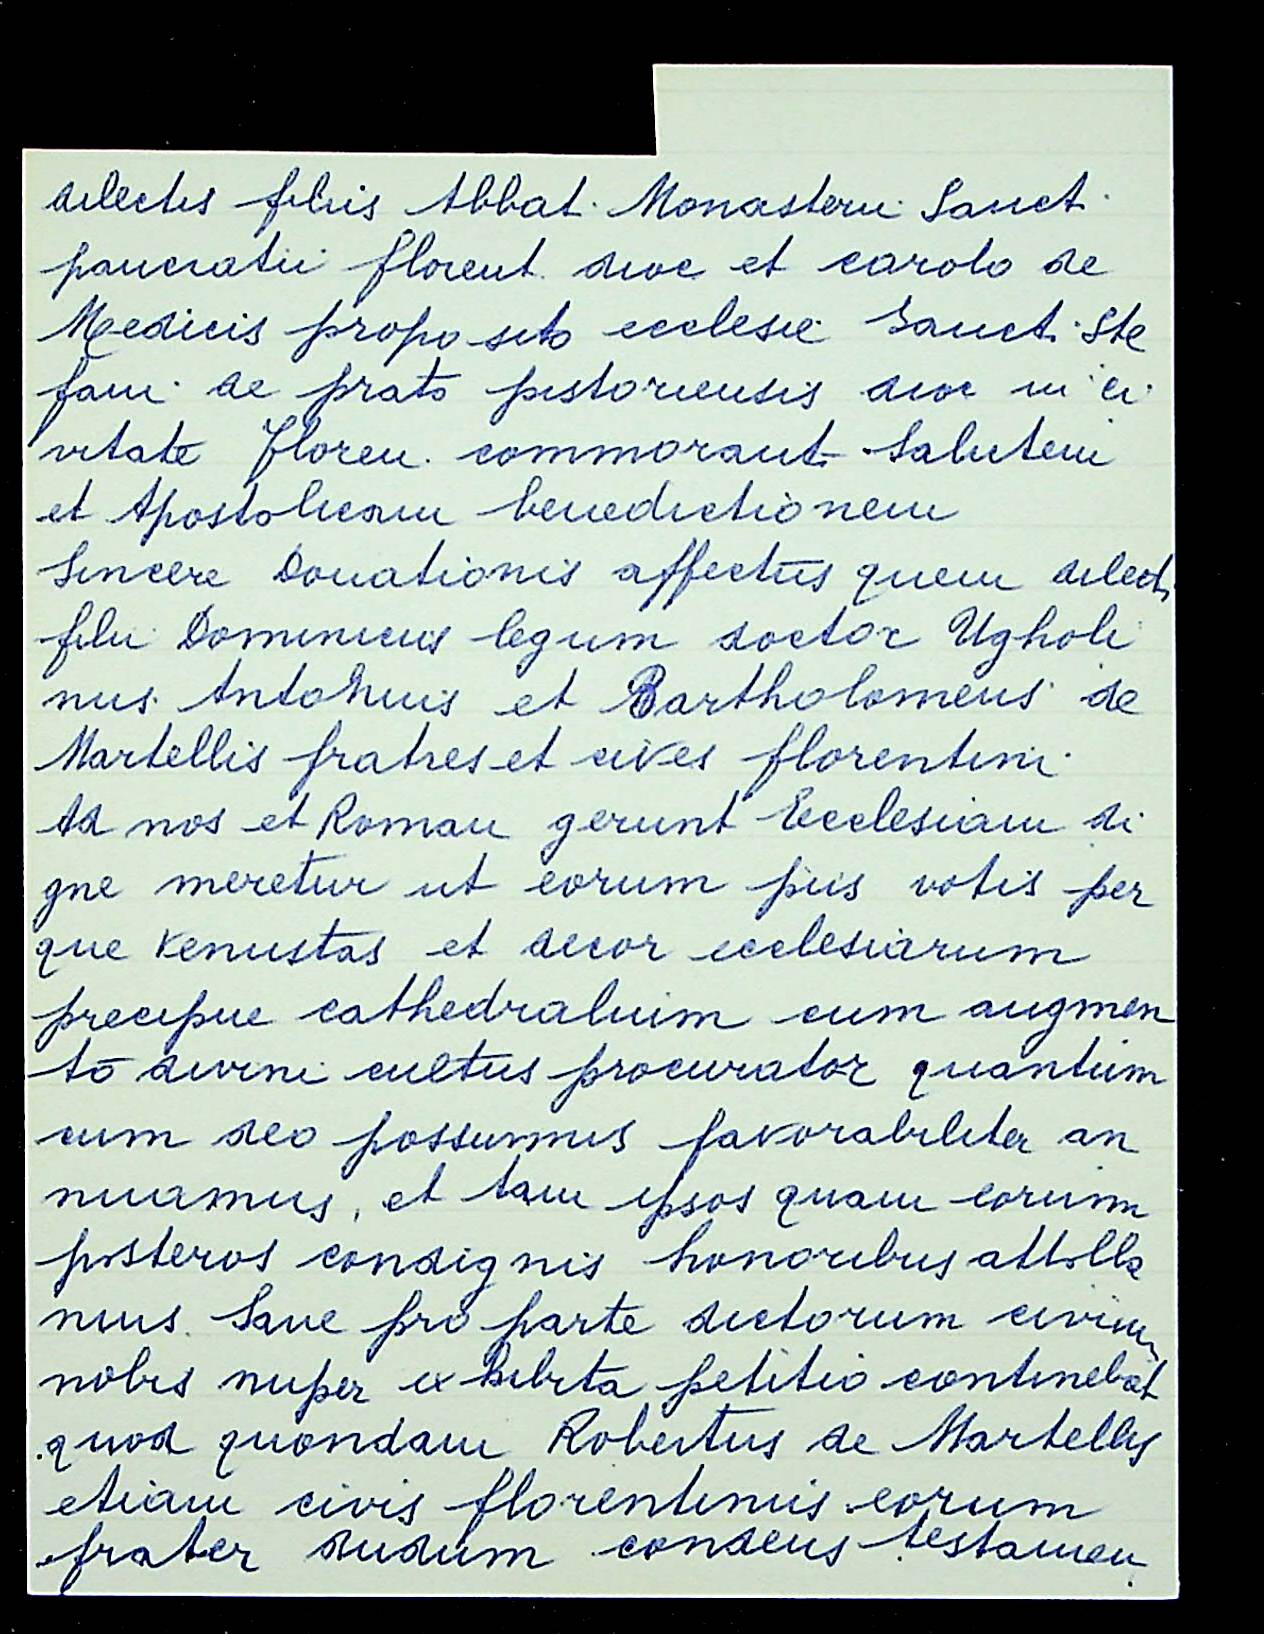 dilectis filiis Abbat. Monasterii Sanct.
pancratii florent. dioc et carolo de
Medicis proposito ecclesie Sanct. Ste
fani de prato pistoriensis dioc in ci
vitate floren. commorant. Salutem
et Apostolicam benedictionem
Sincere Donationis affectus quem dilecti
filii Dominicus legum doctor Ugholi
nus Antonius et Bartholomeus de
Martellis fratres et cives florentini.
Ad nos et Roman gerunt Ecclesiam di
gne meretur ut eorum piis votis per
que venustas et decor ecclesiarum
precipue cathedralium cum augmen
to divini cultus procurator quantum
cum deo possumus favorabiliter an
nuamus, et tam ipsos quam eorum
posteros condignis honoribus attolla
mus. Sane pro parte dictorum civium
nobis nuper exhibita petitio continebat
quod quondam Robertus de Martellis
etiam civis florentinus eorum
frater dudum condens testamen